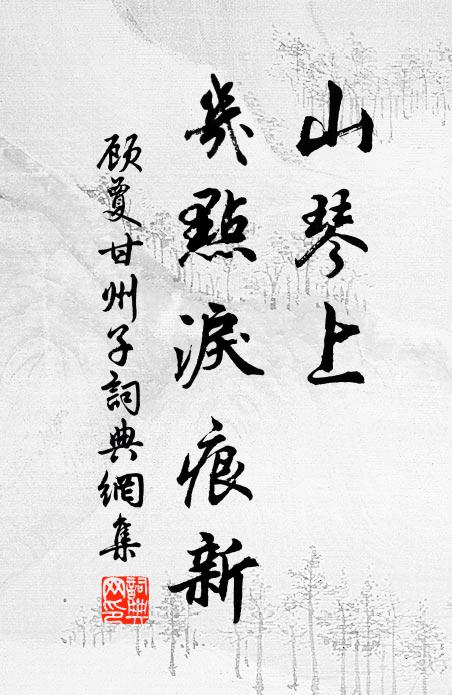 山琴上
幾點淚痕新
顧敻甘州子詞典網集
詞典網印